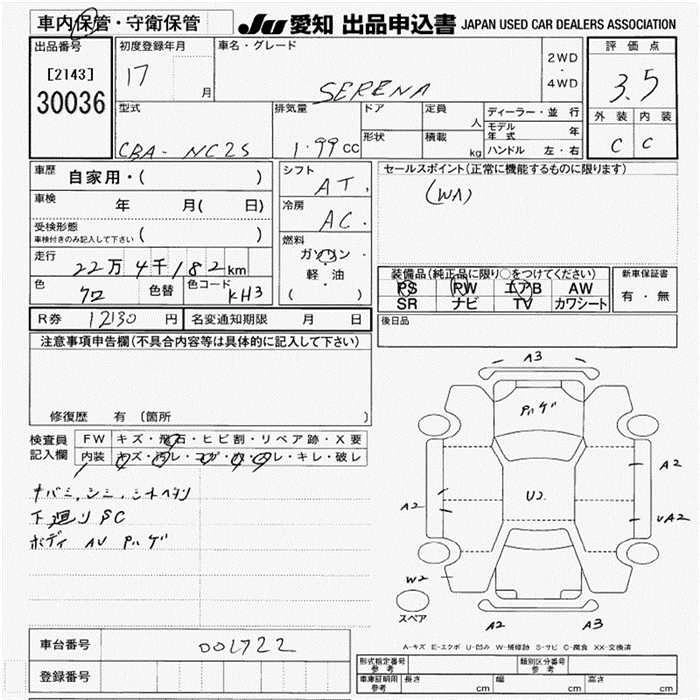 車内保管・守衛保管
JU 愛知 出品申込書 JAPAN USED CAR DEALERS ASSOCIATION
出品番号
[2143]
30036
初度登録年月
17 月
車名・グレード
SERENA
2WD
・
4WD
評価点
3.5
外装 内装
C C
型式
CBA- NC25
排気量
1.99 cc
ドア
形状
定員
人
積載
kg
ディーラー・並行
モデル年式 年
ハンドル 左・右
車歴
自家用・( )
車検
年 月( 日)
受検形態
車検付きのみ記入して下さい ( )
走行
22万4千182km
色
クロ
色替
色コード
KH3
シフト
AT.
冷房
AC.
燃料
ガソリン・
軽・油
( )
セールスポイント(正常に機能するものに限ります)
(WA)
装備品(純正品に限り○をつけてください)
PS PW エアB AW
SR ナビ TV カワシート
新車保証書
有・無
R券 12130 円
名変通知期限 月 日
後日品
注意事項申告欄(不具合内容等は具体的に記入して下さい)
修復歴 有 (箇所 )
検査員
記入欄
FW キズ・飛石・ヒビ割・リペア跡・X要
内装 キズ・汚レ・コゲ・穴・スレ・キレ・破レ
ナバミ,シミ,シートヘタリ
下廻り SC
ボディ AU Pハゲ
A3
Pハゲ
A2
U2
A2
UA2
W2
スペア
A2
A3
A-キズ E-エクボ U-凹み W-補修跡 S-サビ C-腐食 XX-交換済
車台番号 001722
登録番号
形式指定番号
参考
類別区分番号
参考
車庫証明用
参考
長さ cm 幅 cm 高さ cm